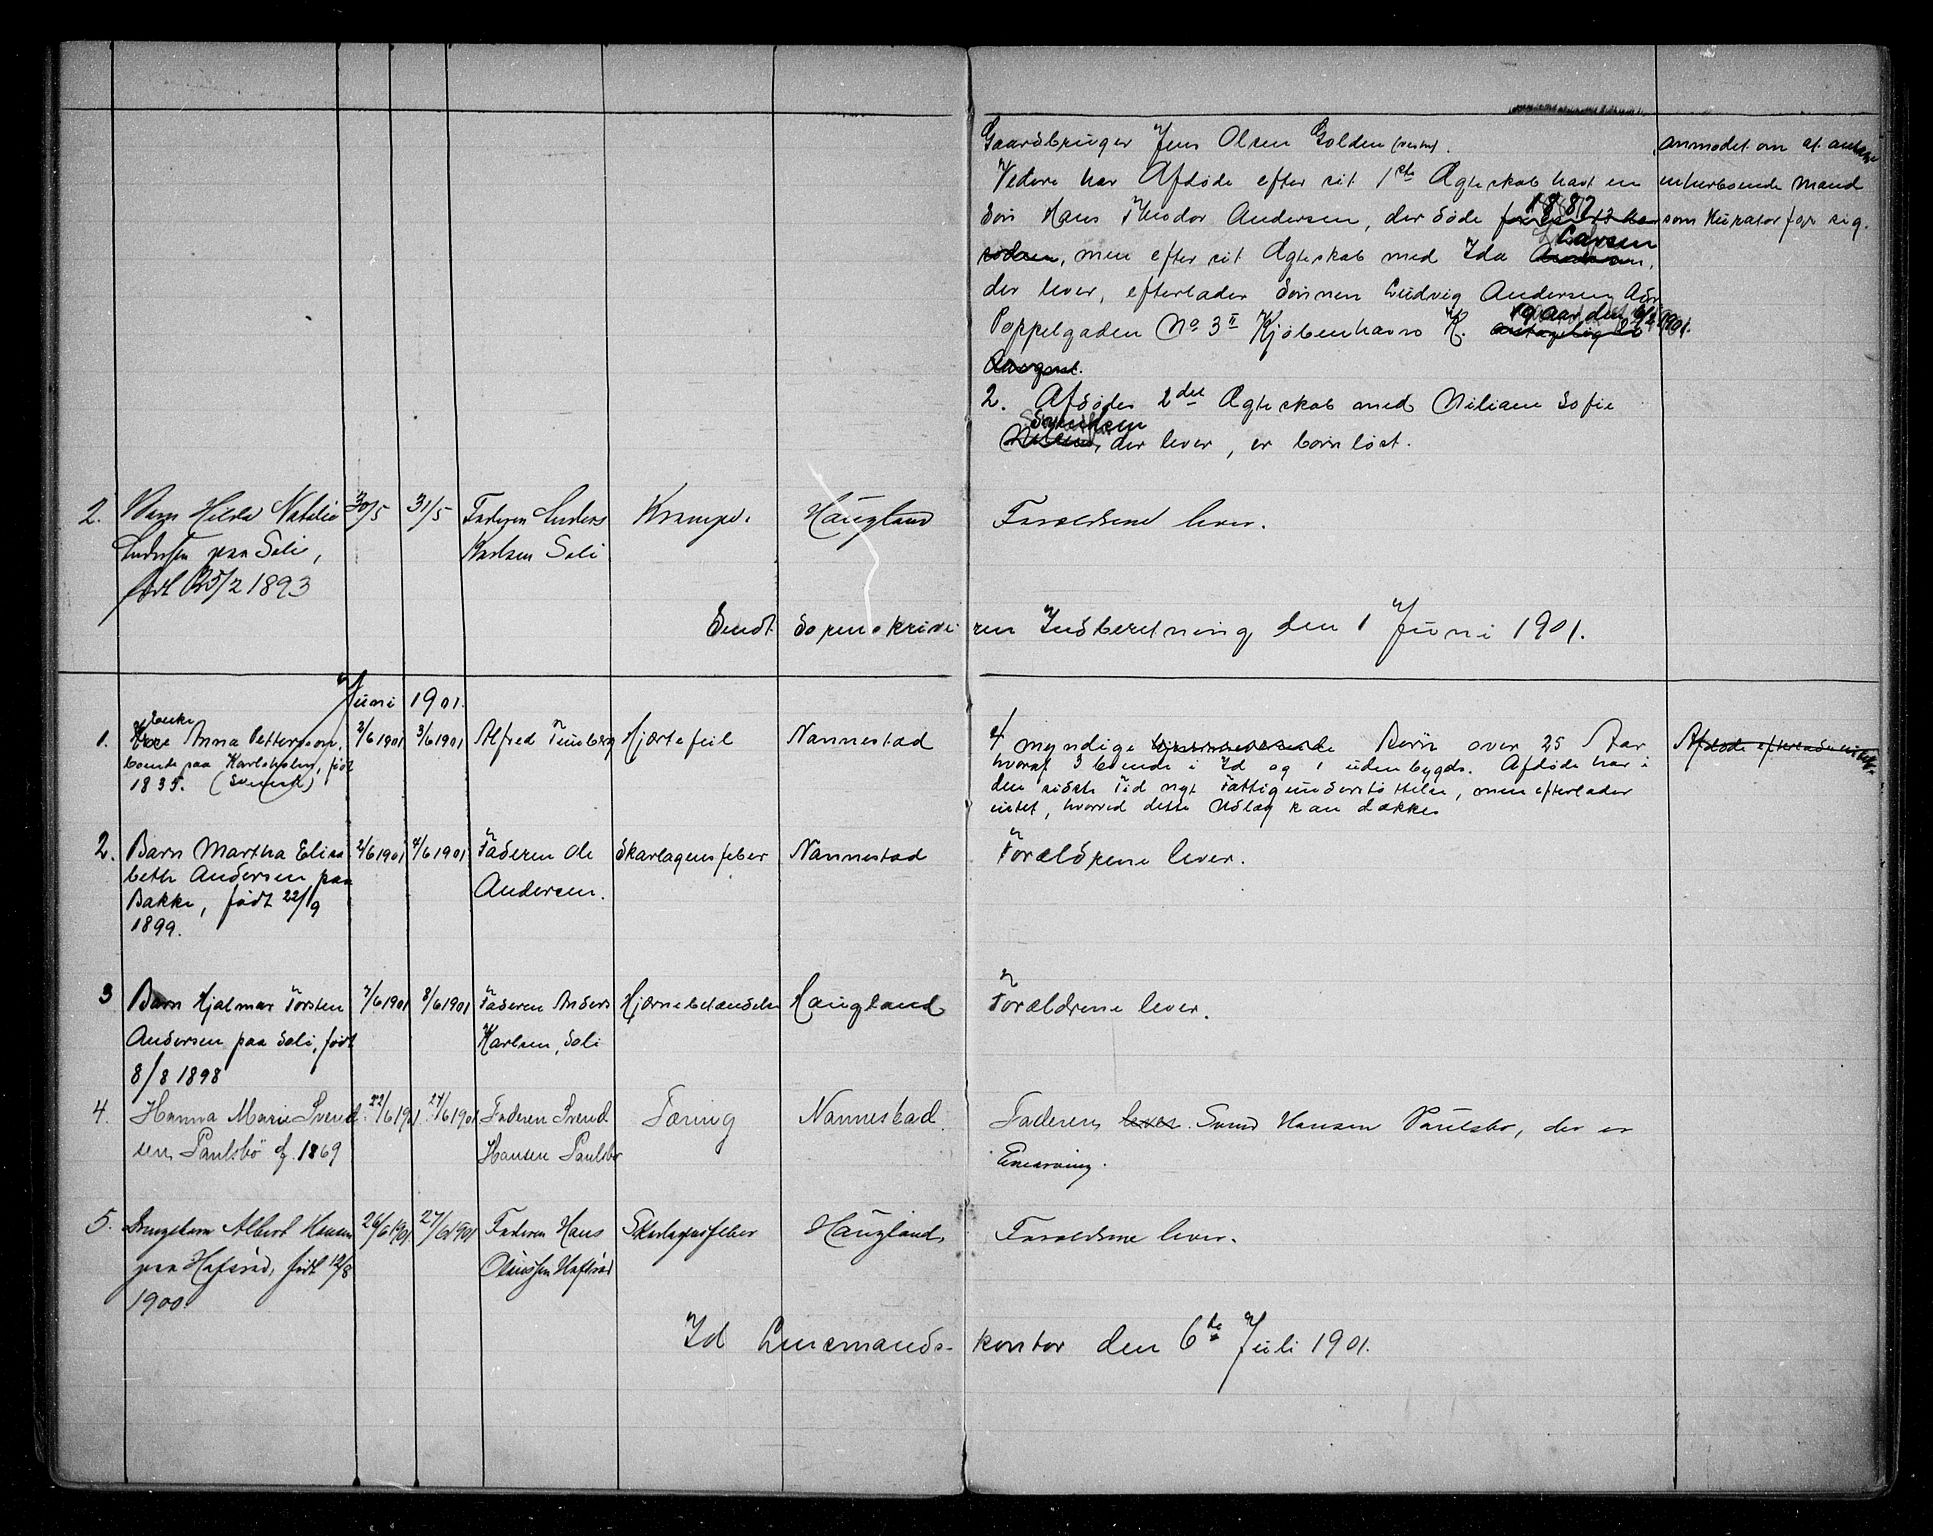 Gaardbruger Jens Olsen Golden (vestre). anmodet om at antage
Videre har Afdøde efter sit 1ste Ægteskab havt en enherboende Mand
Søn Hans Theodor Andersen, der døde 1882 som Kurator for sig.
siden, men efter sit Ægteskab med Ida Larsen,
der lever, efterlader Sønnen Ludvig Andersen Adr
Poppelgaden No 3 II Kjøbenhavn K. 19 Aar den 6/4 1901.
August.
2. Afdødes 2det Ægteskab med Niliane Sofie
Svendsen
der lever, er barnløst.
2. Barn Hilda Natalie 30/5 31/5 Faderen Anders Krampe. Haugland Forældrene lever.
Andersen paa Sali, Karlsen Sali
født 25/2 1893
Sendt Sorenskriveren Indberetning den 1 Juni 1901.
Juni 1901.
Enke
1. Anna Pettersson, 2/6 1901 3/6 1901 Alfred Hjertefeil Nannestad 4 myndige Børn over 25 Aar Afdøde efterlader
boende paa Karlsholm, født hvoraf 3 boende i Id og 1 udenbygds. Afdøde har i
1835. (Svensk) den sidste Tid nyt Fattigunderstøttelse, men efterlader
intet, hvorved dette Udlæg kan dækkes
2. Barn Martha Elisa 2/6 1901 4/6 1901 Faderen Ole Skarlagensfeber Nannestad Forældrene lever.
beth Andersen paa Andersen.
Bakke, født 22/9
1899.
3 Barn Hjalmar Torsten 7/6 1901 8/6 1901 Faderen Anders Hjernebetændelse Haugland Forældrene lever.
Andersen paa Sali, født Karlsen, Sali
8/8 1898
4. Hanna Marie Svend 22/6 1901 24/6 1901 Faderen Svend Tæring Nannestad. Faderen lever Svend Hansen Paulsbo, der er
sen Paulsbø f. 1869 Hansen Paulsbo Enearving.
5. Drengebarn Albert Hansen 26/6 1901 27/6 1901 Faderen Hans Skarlagensfeber Haugland Forældrene lever.
paa Hafsrød, født 12/8 Hafsrød
1900.
Id Lensmandskontor den 6te Juli 1901.